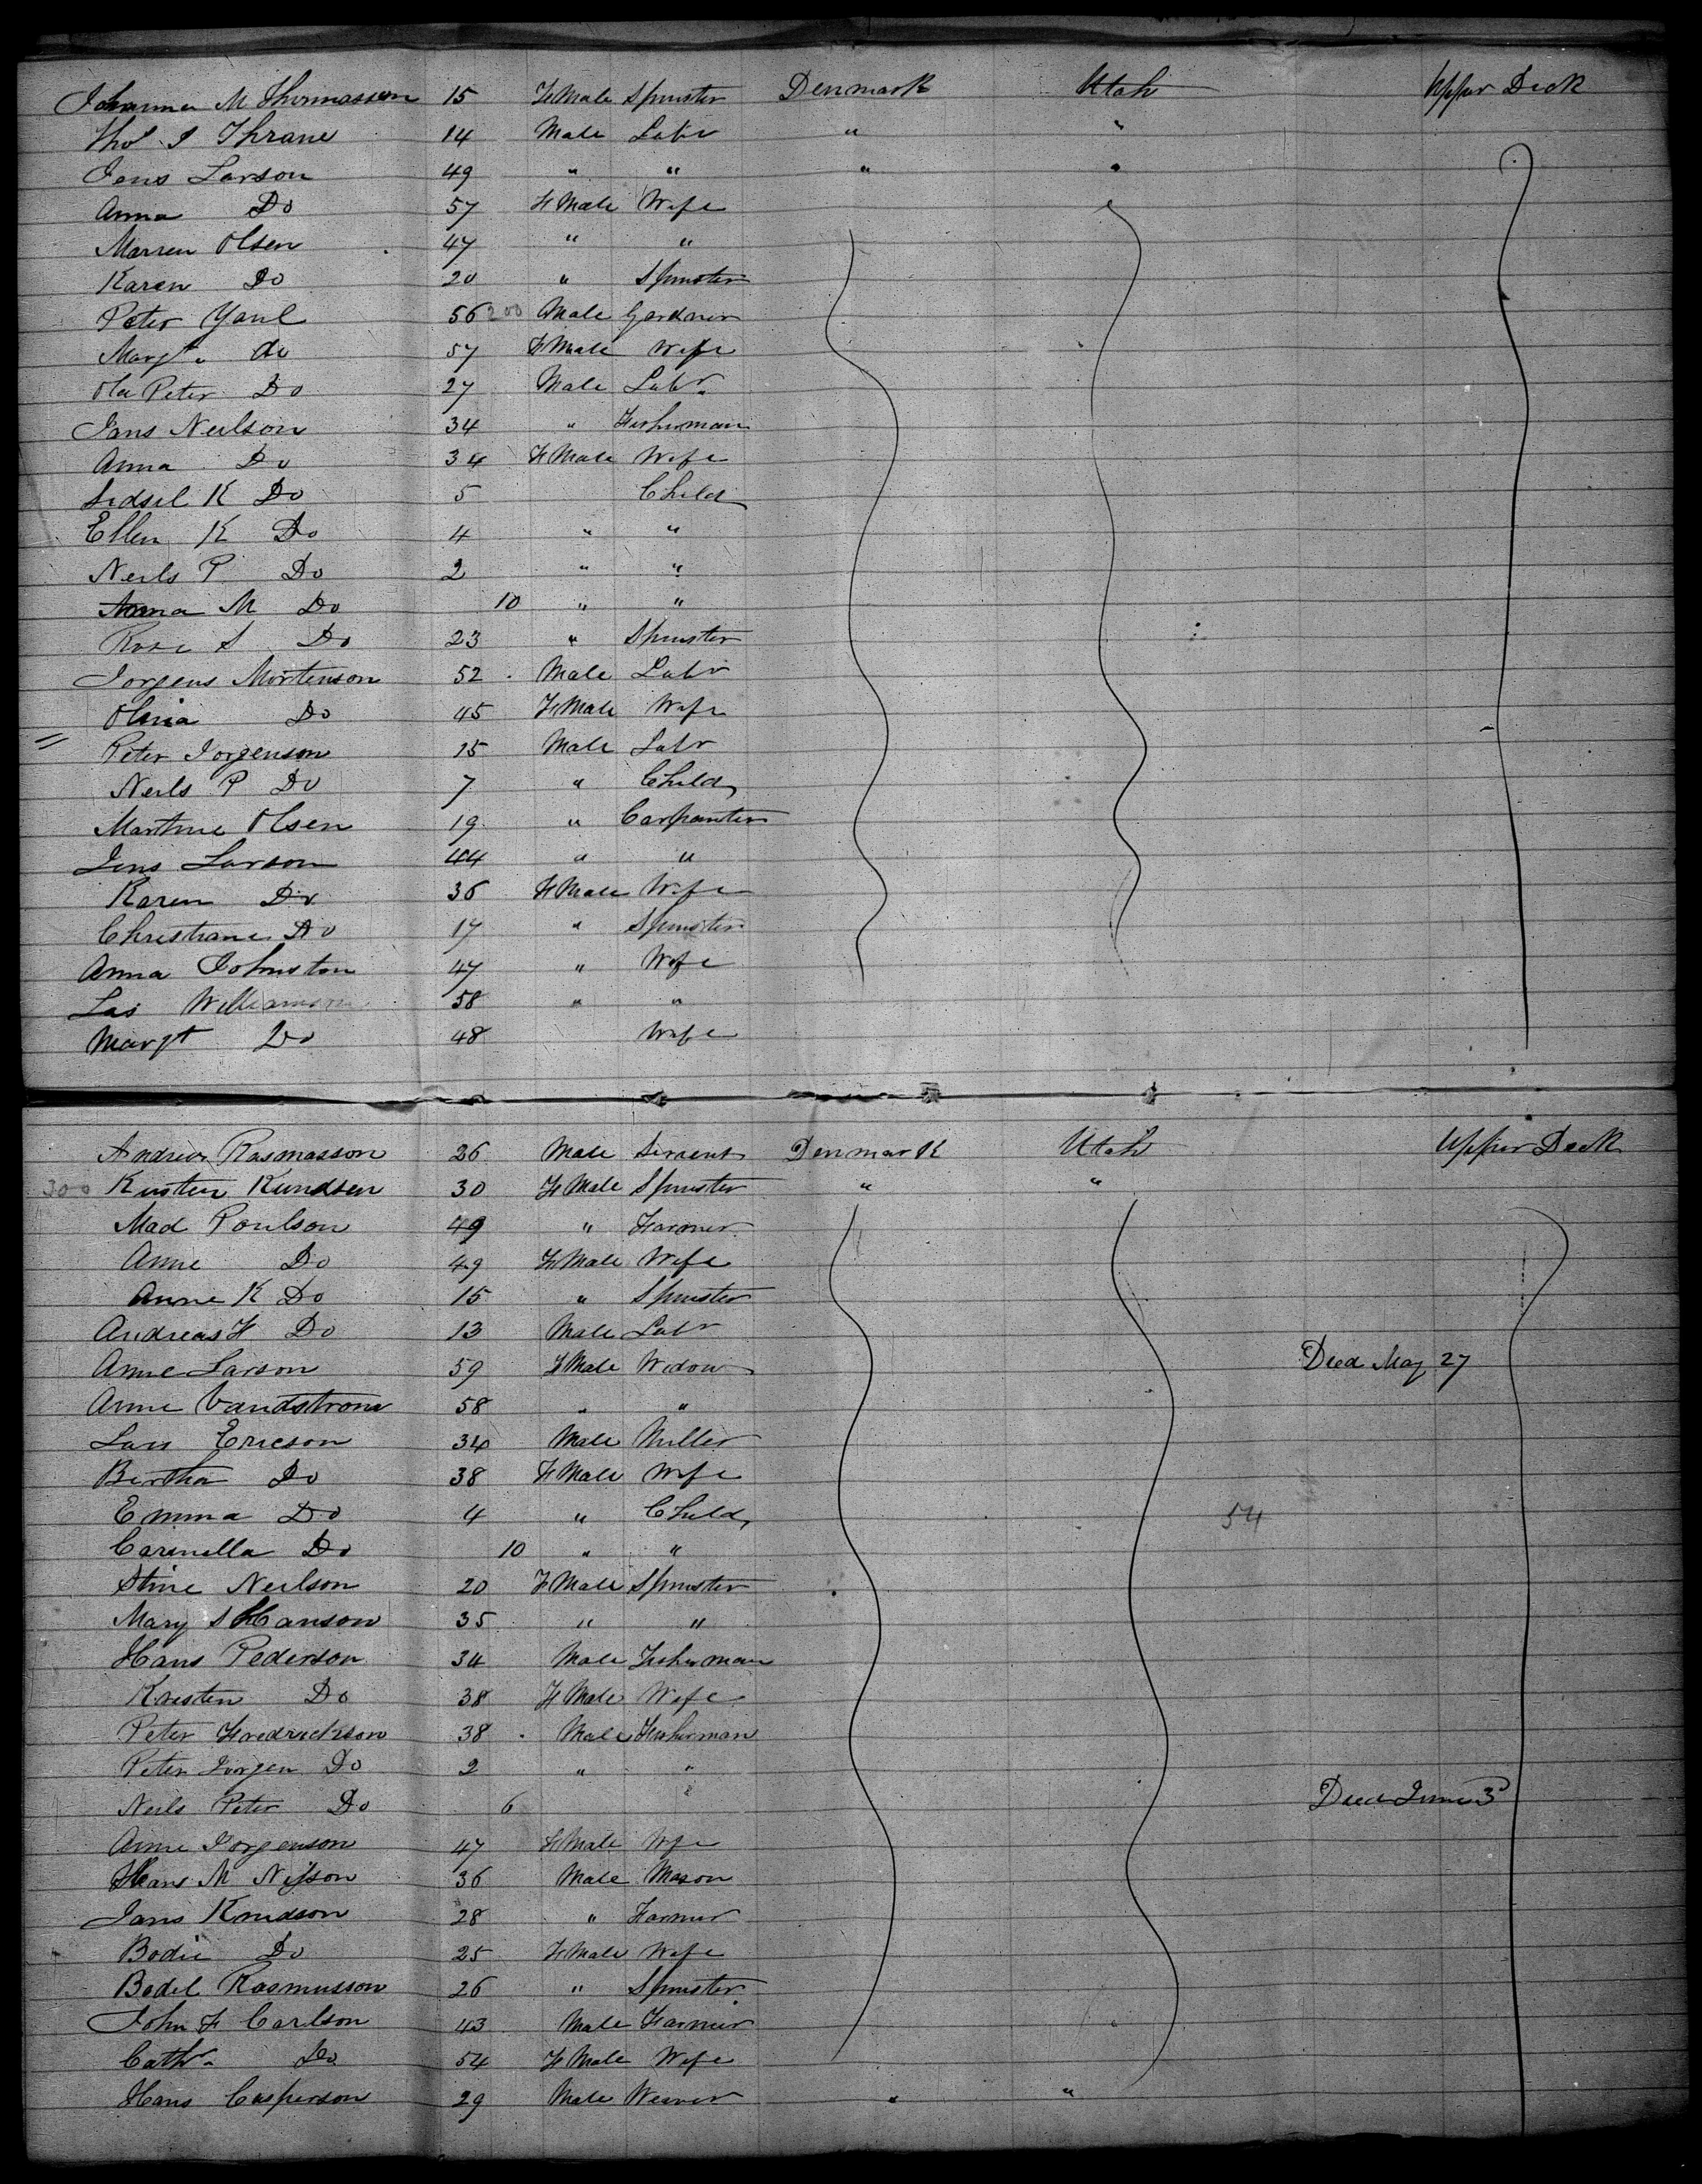 Johanna M Thomassen 15 FMale Spinster Denmark Utah Upper Deck
Tho S Thrane 14 Male Labr " "
Jens Larson 49 " " " "
Anna Do 57 FMale Wife
Marren Olsen 47 " "
Karen Do 20 " Spinster
Peter Yaul 56 200 Male Gardner
Margt. do 57 FMale Wife
Ole Peter Do 27 Male Labr.
Jans Neilson 34 " Fisherman
Anna Do 34 FMale Wife
Sidsel K Do 5 Child
Ellen K Do 4 " "
Neils P Do 2 " "
Anna M Do 10 " "
Rose S Do 23 " Spinster
Jorgens Mortenson 52 Male Labr
Olivia Do 45 FMale Wife
Peter Jorgenson 15 Male Labr
Neils P Do 7 " Child
Martine Olsen 19 " Carpanter
Jens Larson 44 " "
Karen Do 36 FMale Wife
Christiane Do 17 " Spinster
Anna Johnston 47 " Wife
Las Williamson 58 " "
Margt Do 48 Wife
Andrew Rasmasson 26 Male Servent Denmark Utah Upper Deck
300 Kirsten Kundsen 30 FMale Spinster " "
Mad Poulson 49 " Farmer
Anne Do 49 FMale Wife
Anne K Do 15 " Spinster
Andreas F Do 13 Male Labr
Anne Larson 59 FMale Widow Died May 27
Anne Vandstrom 58 " "
Lars Ericson 34 Male Miller
Bertha Do 38 FMale Wife
Emma Do 4 " Child 54
Carinella Do 10 " "
Stine Neilson 20 FMale Spinster
Mary S Hanson 35 " "
Hans Pederson 34 Male Fisherman
Kristen Do 38 FMale Wife
Peter Fredrickson 38 Male Fisherman
Peter Jorgen Do 2 " "
Neils Peter Do 6 Died June 3
Anne Jorgenson 47 FMale Wife
Hans M Nilson 36 Male Mason
Jans Knudson 28 " Farmer
Bodie Do 25 FMale Wife
Bodel Rasmusson 26 " Spinster
John F Carlson 43 Male Farmer
Cathr. Do 54 FMale Wife
Hans Casperson 29 Male Weaver " "